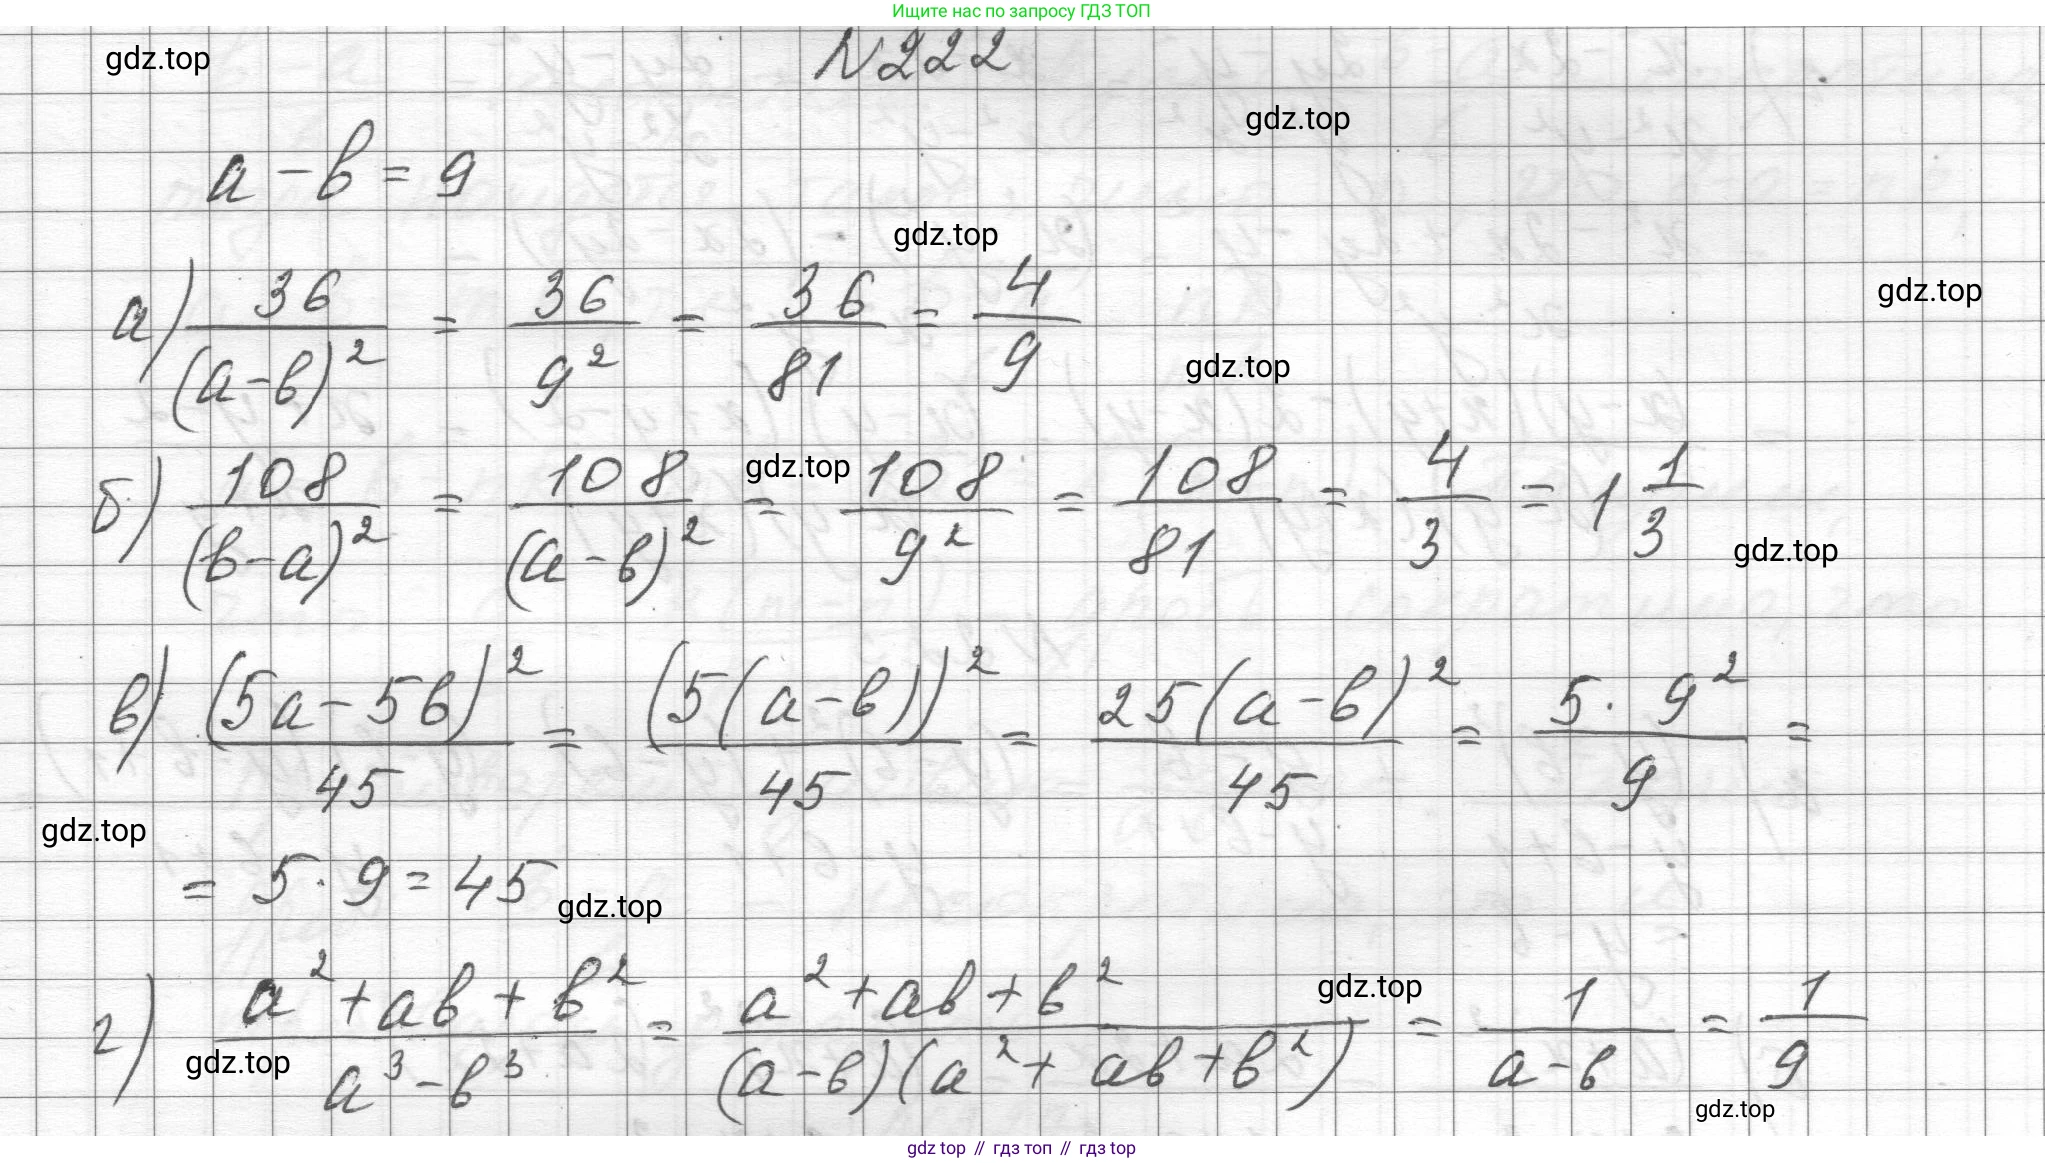 Ищите нас по запросу ГДЗ ТОП
gdz.top
N222
gdz.top
a - b = 9
gdz.top
а) 36/(a-b)² = 36/9² = 36/81 = 4/9
gdz.top
gdz.top
б) 108/(b-a)² = 108/(a-b)² = 108/9² = 108/81 = 4/3 = 1 1/3
gdz.top
gdz.top
в) (5a-5b)²/45 = (5(a-b))²/45 = 25(a-b)²/45 = 5·9²/9 =
gdz.top
= 5·9 = 45
gdz.top
г) a²+ab+b²/a³-b³ = a²+ab+b²/(a-b)(a²+ab+b²) = 1/a-b = 1/9
gdz.top
gdz.top
gdz.top
gdz top // гдз топ // gdz top